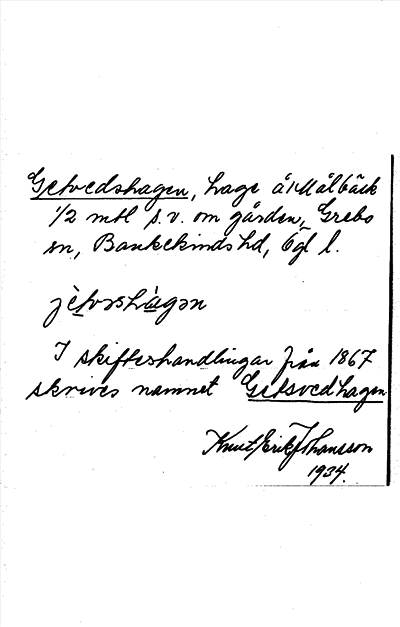 Getvedshagen, hage å Målbäck
1/2 mtl s.v. om gården, Grebo
sn, Bankekinds hd, Ögl l.
jètvəshàgən
I skifteshandlingar från 1867
skrives namnet Getsvedhagen
Knut Erik Johansson
1934.